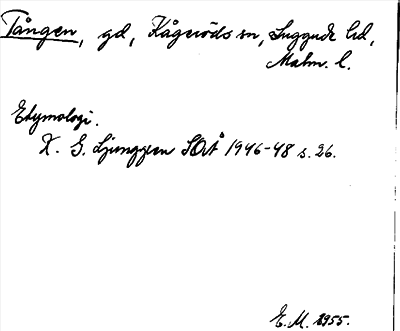 Tången, gd, Kågeröds sn, Luggude hd,
Malm. l.
Etymologi.
K. G. Ljunggren SOÅ 1946-48 s. 26.
E. M. 1955.